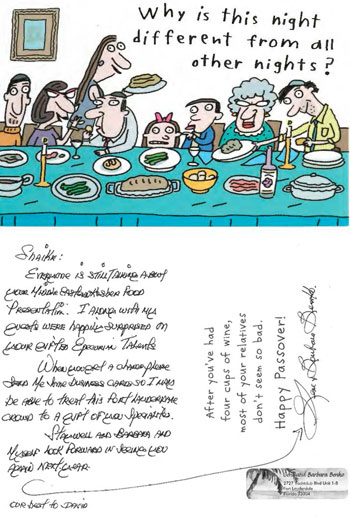 Why is this night
different from all
other nights?
Shaike:
Everyone is still talking about
your Middle Eastern
Food
Presentation. I along with my
guests were happily surprised on
your gifted Epicurian Talents
When you get a chance please
send me some business cards so I may
be able to treat this Fort Lauderdale
crowd to a gift of your specialties.
Stay well and Barbara and
myself look forward in seeing you
again next year.
our best to David
After you've had
four cups of wine,
most of your relatives
don't seem so bad.
Happy Passover!
& Barbara
Barbara
Fort Lauderdale
Florida